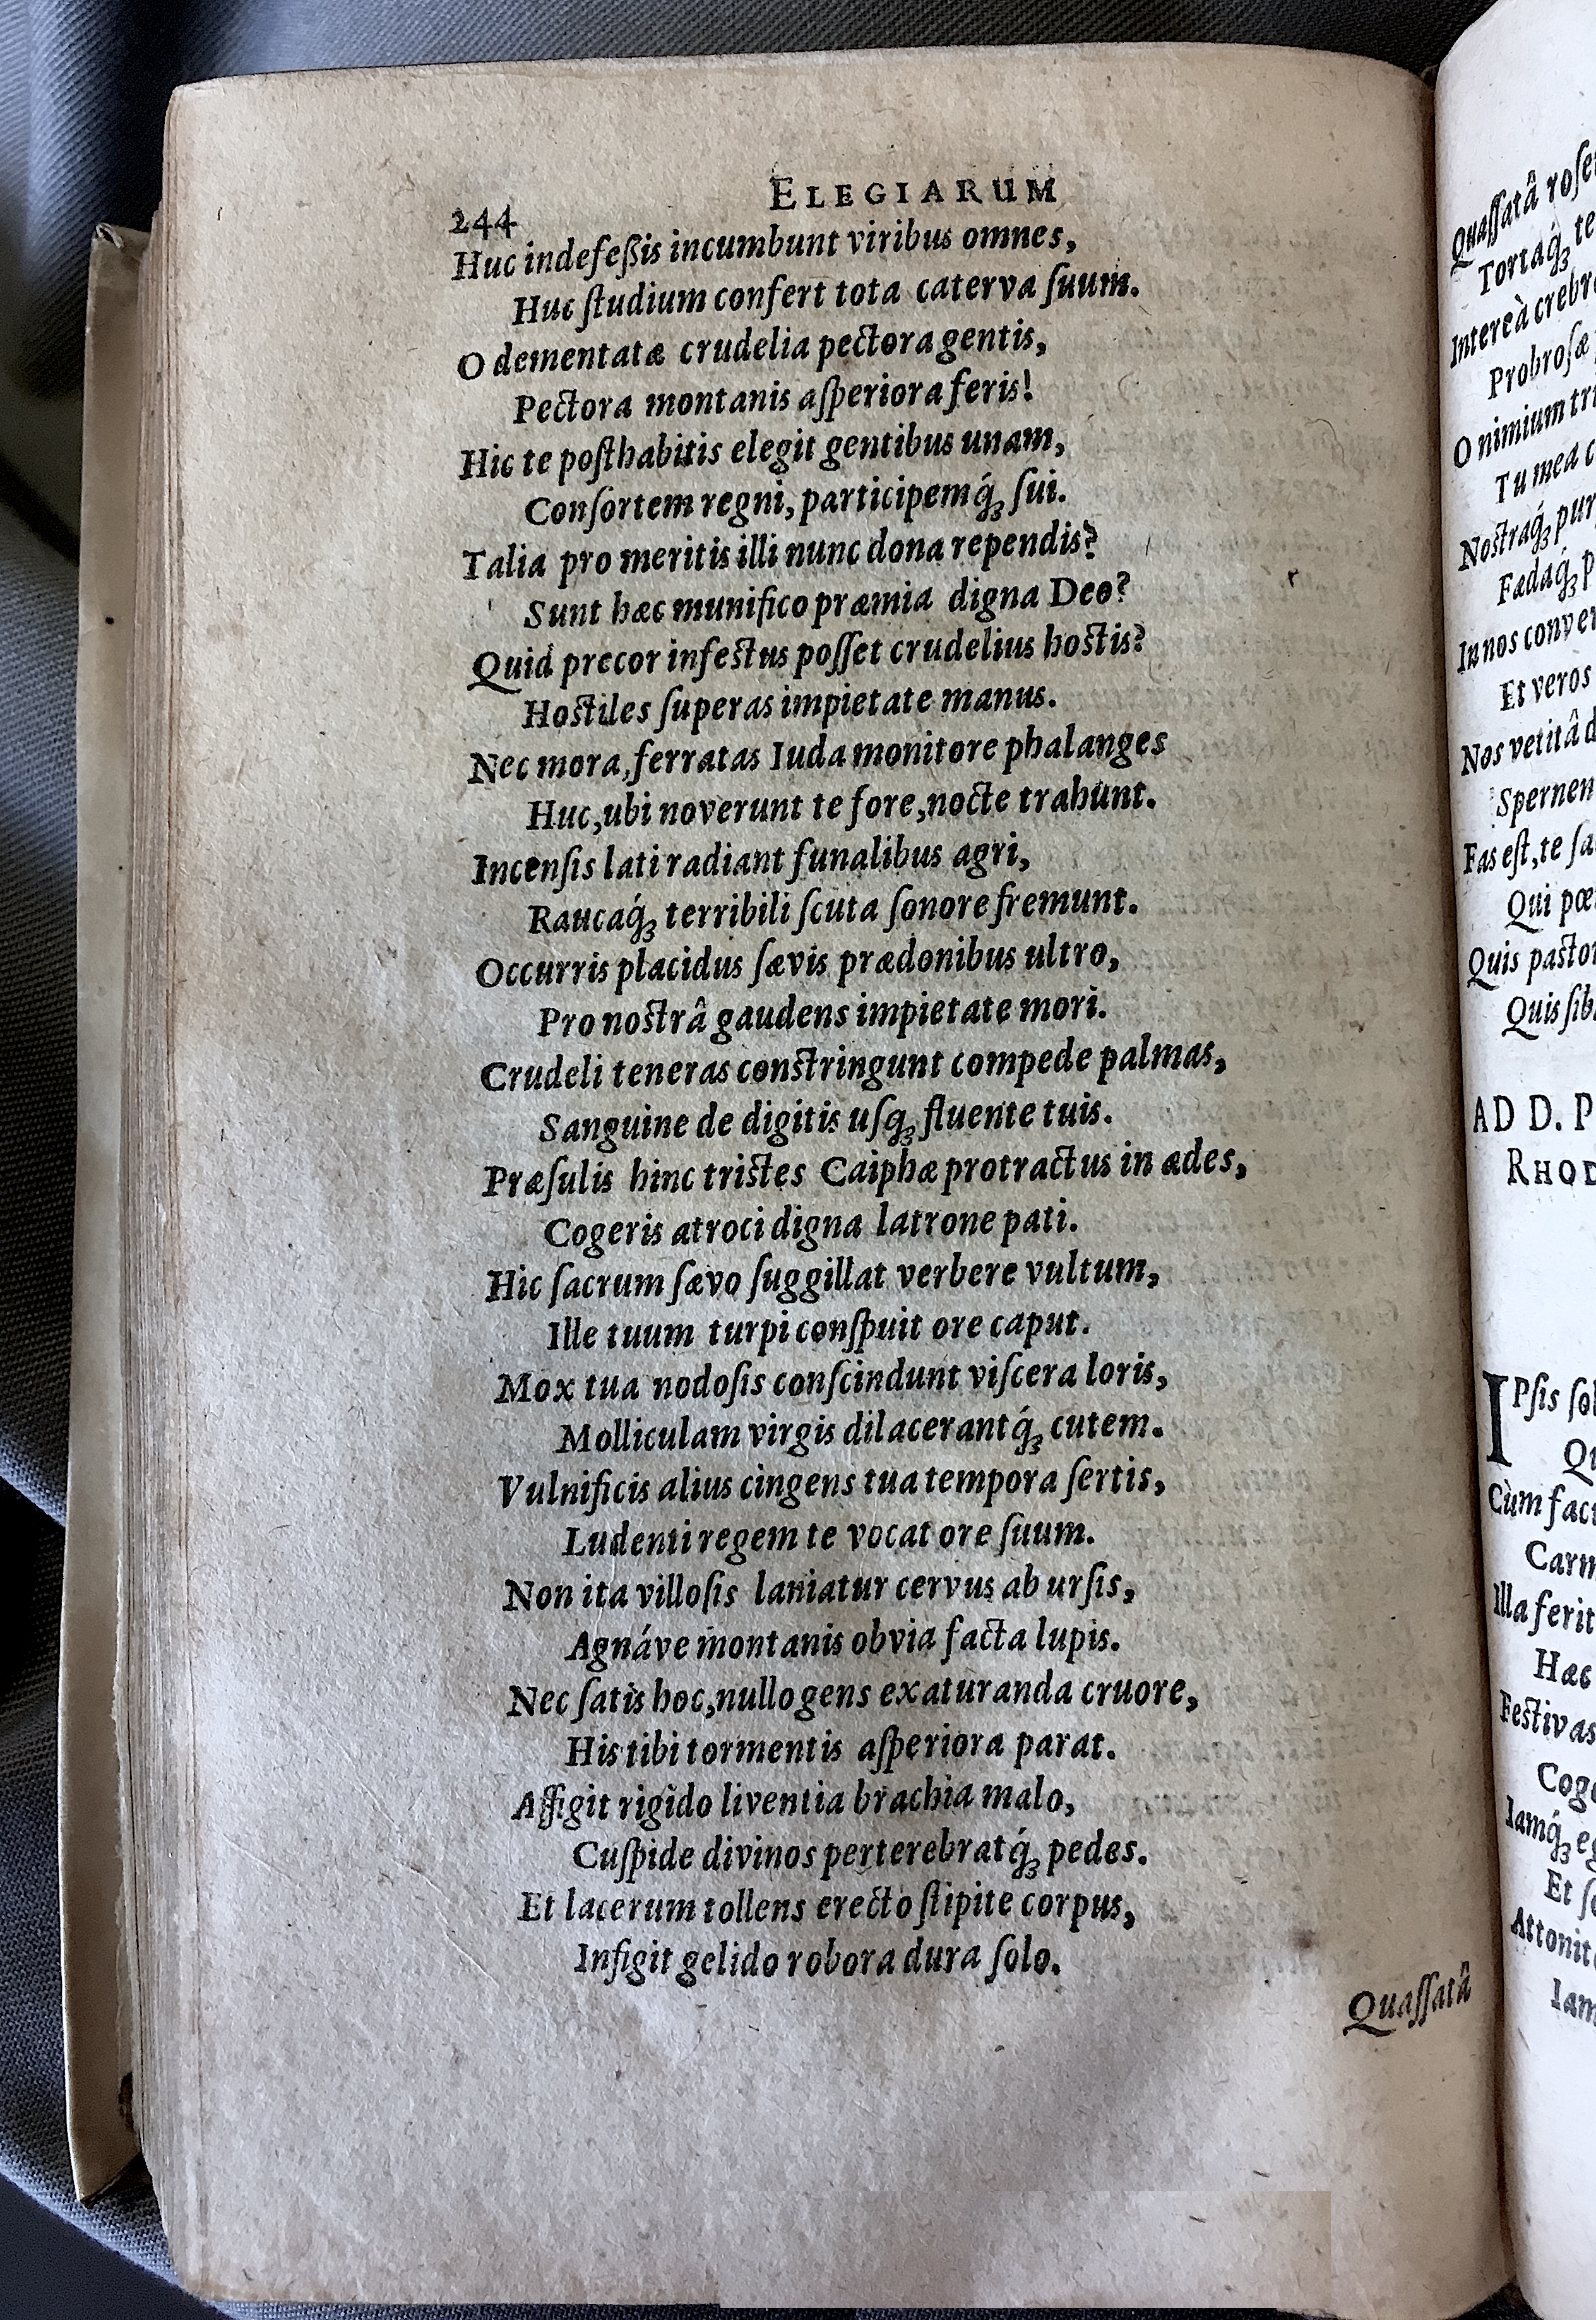 244 ELEGIARUM
Huc indefeßis incumbunt viribus omnes,
Huc ſtudium confert tota caterva ſuum.
O dementatæ crudelia pectora gentis,
Pectora montanis aſperiora feris!
Hic te poſthabitis elegit gentibus unam,
Conſortem regni, participemq́ꝫ ſui.
Talia pro meritis illi nunc dona rependis?
Sunt hæc munifico præmia digna Deo?
Quid precor infeſtus poſſet crudelius hoſtis?
Hoſtiles ſuperas impietate manus.
Nec mora, ferratas Iuda monitore phalanges
Huc, ubi noverunt te fore, nocte trahunt.
Incenſis lati radiant funalibus agri,
Raucaq́ꝫ terribili ſcuta ſonore fremunt.
Occurris placidus ſævis prædonibus ultro,
Pro noſtrâ gaudens impietate mori.
Crudeli teneras conſtringunt compede palmas,
Sanguine de digitis uſqꝫ fluente tuis.
Præſulis hinc triſtes Caiphæ protractus in ædes,
Cogeris atroci digna latrone pati.
Hic ſacrum ſævo ſuggillat verbere vultum,
Ille tuum turpi conſpuit ore caput.
Mox tua nodoſis conſcindunt viſcera loris,
Molliculam virgis dilacerantq́ꝫ cutem.
Vulnificis alius cingens tua tempora ſertis,
Ludenti regem te vocat ore ſuum.
Non ita villoſis laniatur cervus ab urſis,
Agnáve montanis obvia facta lupis.
Nec ſatis hoc, nullo gens exaturanda cruore,
His tibi tormentis aſperiora parat.
Affigit rigido liventia brachia malo,
Cuſpide divinos perterebratq́ꝫ pedes.
Et lacerum tollens erecto ſtipite corpus,
Infigit gelido robora dura ſolo.
Quaſſatâ
Quaſſatâ
Tortaq́ꝫ
Intereà
Probroſæ
O nimium
Tu mea
Noſtraq́ꝫ
Fædaq́ꝫ
In nos
Et veros
Nos vetitâ
Fas eſt, te
Qui
Quis
Quis
AD D. P
I
Cùm
Illa
Hæc
Iamq́ꝫ
Et